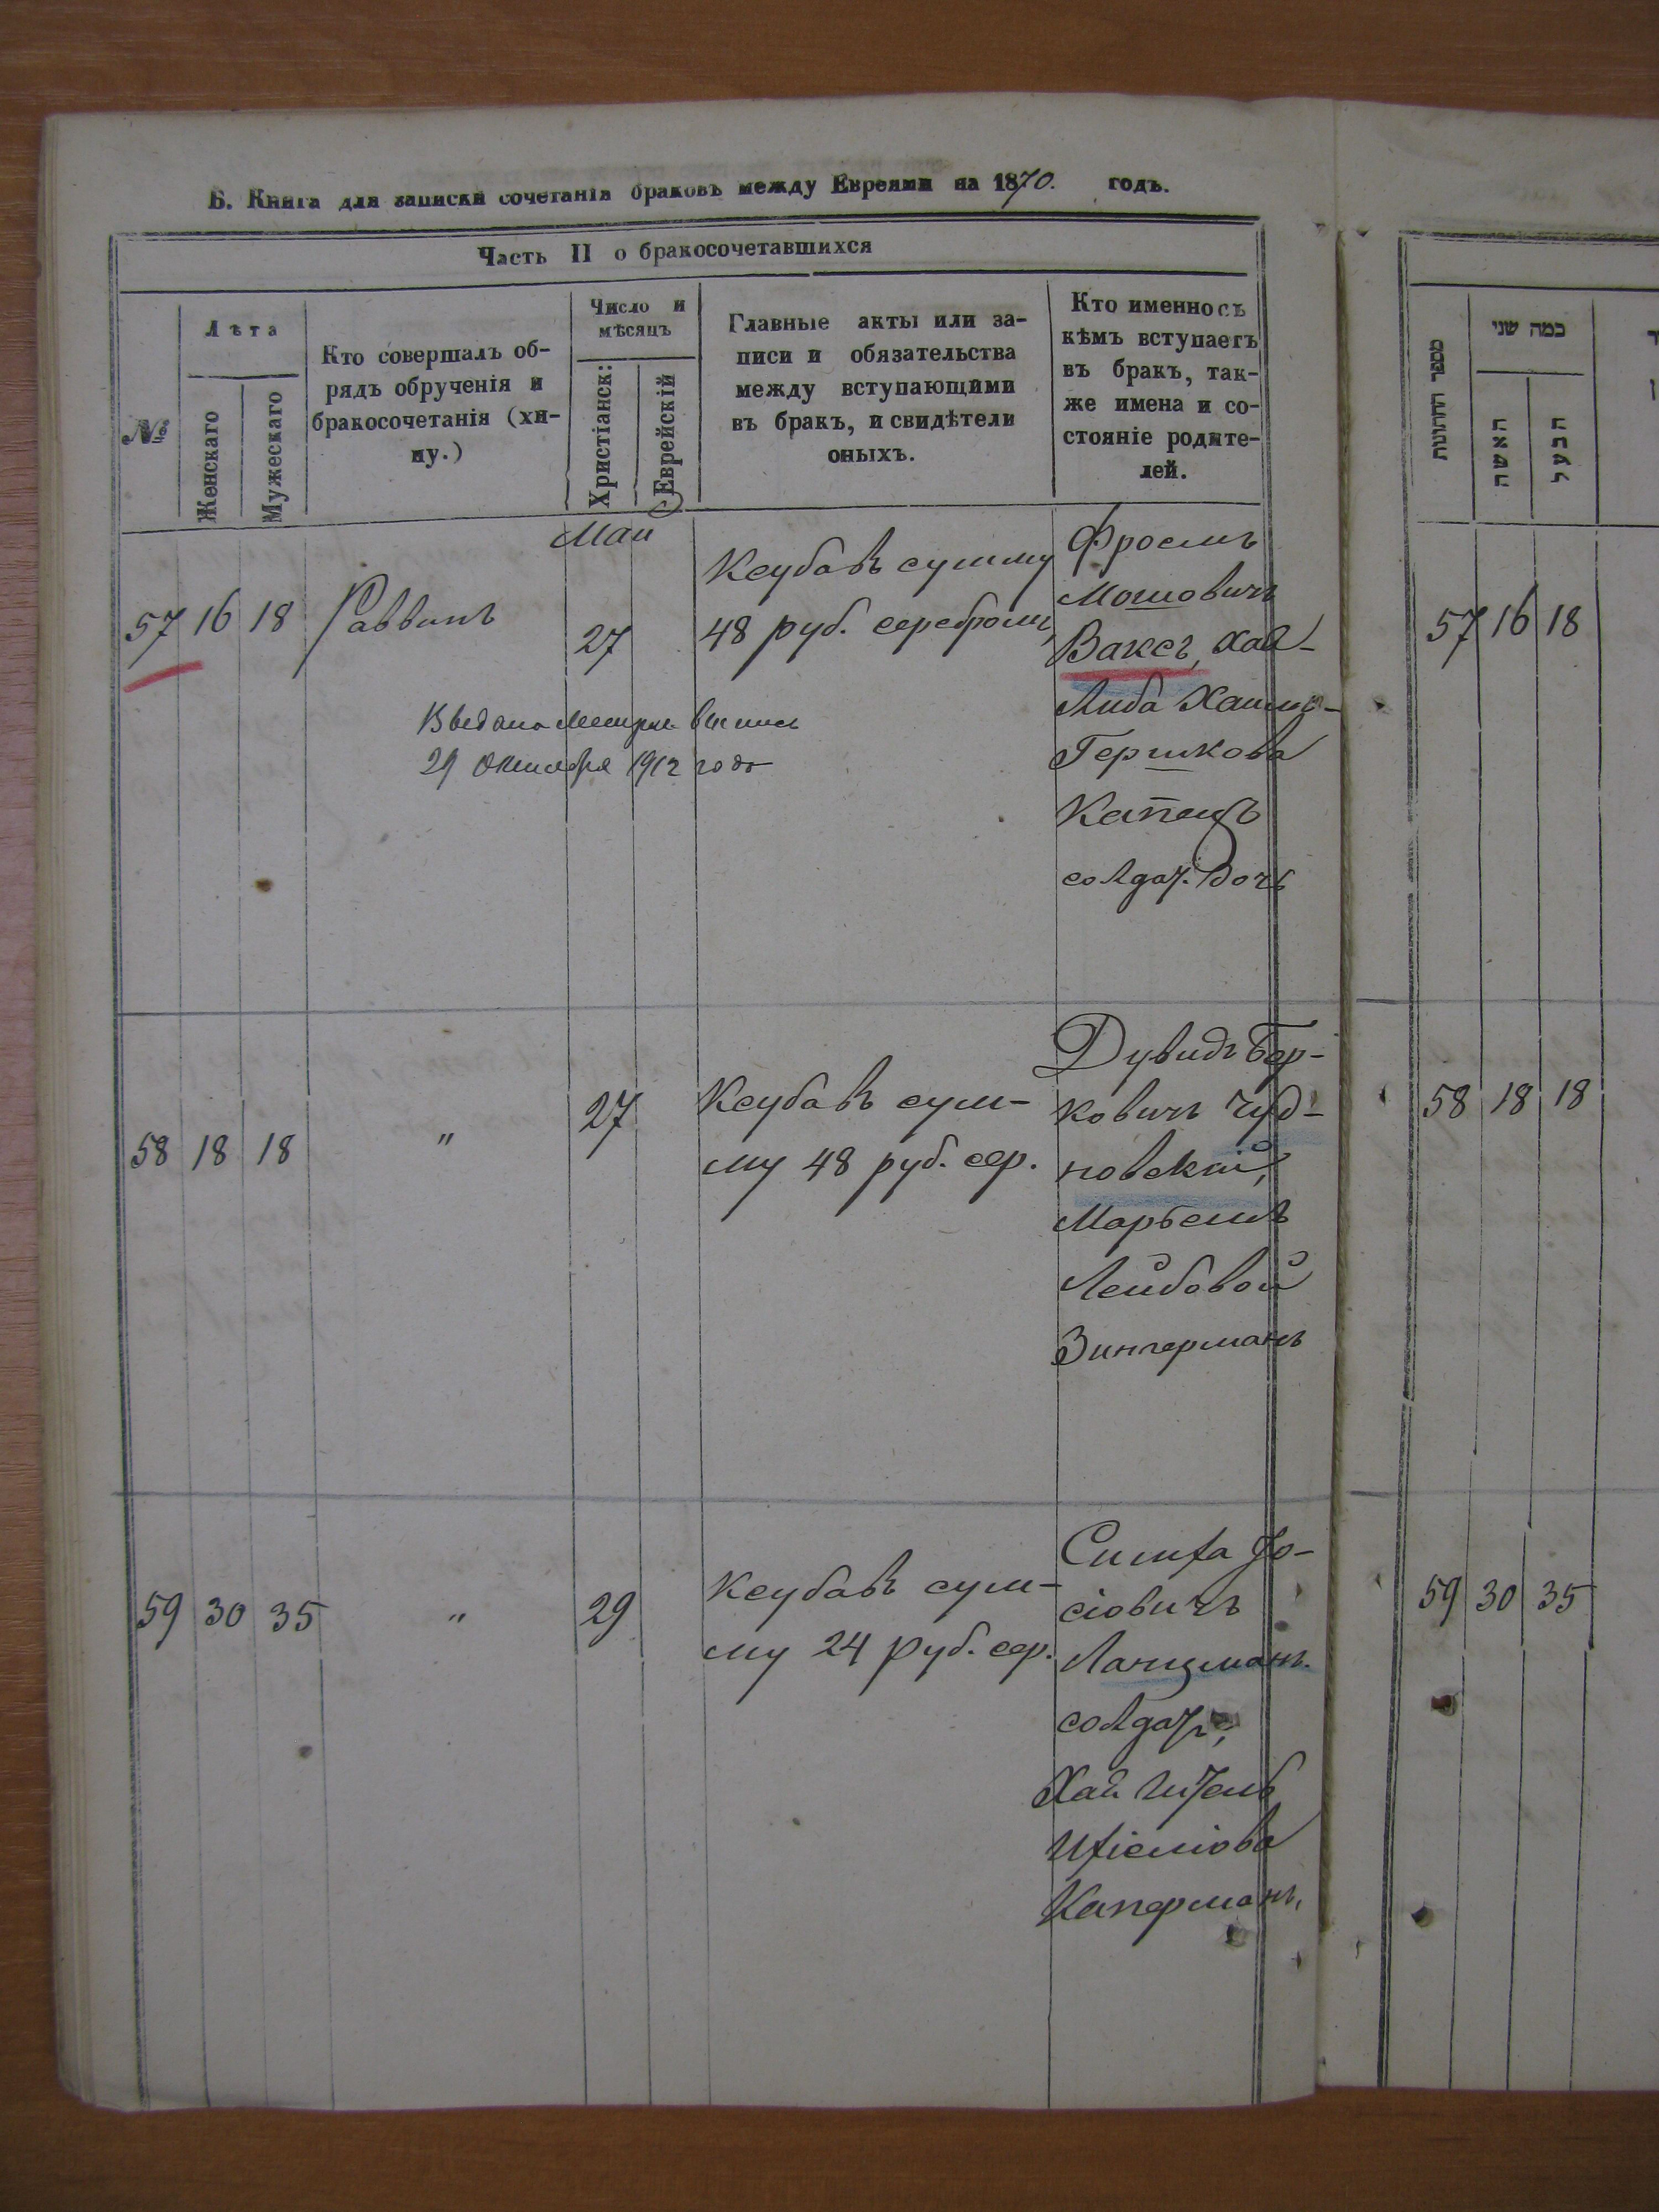 Б. Книга для записки сочетанія браковъ между Евреями на 1870. годъ.
Часть II о бракосочетавшихся
№
Лѣта
Женскаго
Мужескаго
Кто совершалъ об-
рядъ обрученія и
бракосочетанія (хи-
пу.)
Число и
мѣсяцъ
Христіанск:
Еврейскій
Главные акты или за-
писи и обязательства
между вступающими
въ бракъ, и свидѣтели
оныхъ.
Кто именно съ
кѣмъ вступаетъ
въ бракъ, так-
же имена и со-
стояніе родите-
лей.
Маи
57 16 18 Раввинъ 27
Ксубавъ сумму
48 руб. серебромъ
Фроемъ
Мошовичъ
Ваксъ, Хая-
Либа Хаимо-
Гершкова
Капецъ
солдат. дочь
Выдана Метрич выпись
29 Октября 1912 года
58 18 18 " 27
Ксубавъ сум-
му 48 руб. сер.
Дувидъ Бер-
ковичъ Чуд-
новскій,
Марьемъ
Лейбовой
Зингерманъ
59 30 35 " 29
Ксубавъ сум-
му 24 руб. сер.
Симха Іо-
сіовичъ
Ланцманъ
солдатъ,
Хая
Каперманъ,
מספר החתונות
כמה שני
האשה
הבעל
57 16 18
58 18 18
59 30 35